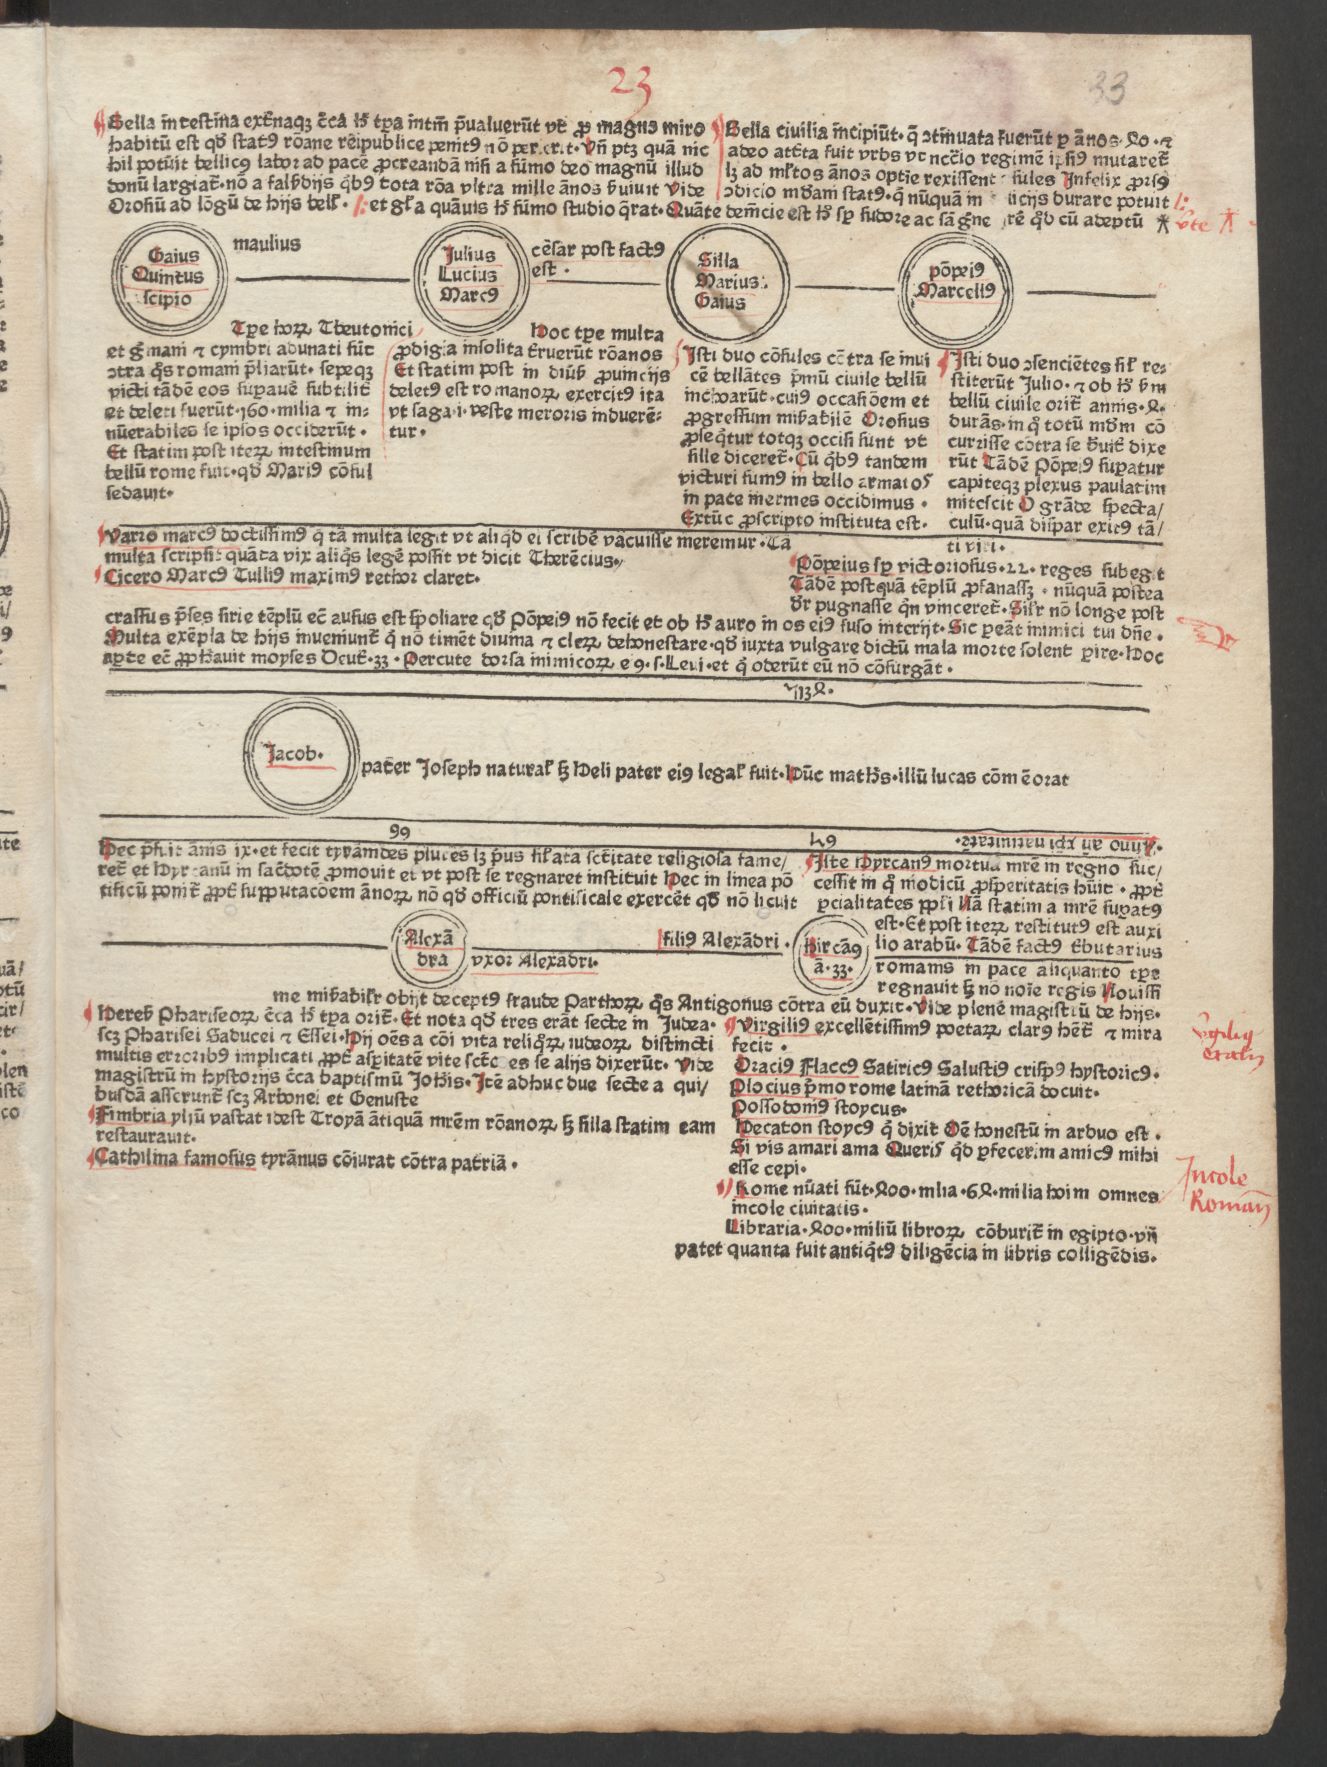 23
33
Bella ītestīa ext̄naqȝ c̄ca h̄ tꝑa īntm̄ p̄ualuerūt vt̄ ꝓ magno miro
habitū est qď statꝰ rōane rēipublice penitꝰ nō perierit· Vn̄ ptȝ quā nic
hil potuit bellicꝰ labor ad pacē ꝓcreandā nisi a sūmo deo magnū illud
donū largiat̄· nō a falsdijs qbꝰ tota rōa vltra mille ānos ẜuiuit Vide
Orosiū ad lōgū de hijs bell· et gl̄a quāuis h̄ sūmo studio q̄rat· Quāte
Bella ciuilia īncipiūt· q̄ ɔtīnuata fuerūt ꝑ ānos· ꝝo· ⁊
adeo atēta fuit vrbs vt nec̄tio regimē ipsiꝰ mutaret̄
lȝ ad ml̄tos ānos optīe rexissent sules Infelix ꝓrsꝰ
ɔdicio mūdam statꝰ· q̄ nūquā in licijs durare potuit
dem̄cie est h̄ sꝑ sudore ac sāgne rē qď cū adeptū
vte
Gaius
Quintus
scipio
maulius
Julius
Lucius
Marcꝰ
cēsar post factꝰ
est ·
Silla
Marius
Gaius
pōpeiꝰ
Marcellꝰ
Tꝑe hoꝝ Theutonici
et g̃mani ⁊ cymbri adunati sūt
ɔtra q̄s romani p̄liarūt· sepeqȝ
victi tādē eos suꝑauē subtilit̄
et deleti fuerūt· 160· milia ⁊ in⸗
nūerabiles se ipsos occiderūt ·
Et statim post iteꝝ intestinum
bellū rome fuit· qď Mariꝰ cōsul
sedauit·
Hoc tꝑe multa
ꝓdigia insolita t̄ruerūt rōanos
Et statim post in diūẜ ꝓuincijs
deletꝰ est romanoꝝ exercitꝰ ita
vt saga· i· veste meroris induerē⸗
tur·
Isti duo cōsules cōtra se inui
cē bellātes p̄mū ciuile bellū
inchoarūt· cuiꝰ occasiōem et
ꝓgressum mirabilē Orosius
ꝓseq̄tur totqȝ occisi sunt vt
sille diceret̄· Cū qbꝰ tandem
victuri sumꝰ in bello armatos
in pace inermes occidimus ·
Extūc ꝓscripto instituta est·
Isti duo ɔsenciētes sil re⸗
stiterūt Julio· ⁊ ob h̄ ẜm
bellū ciuile orit̄ annis· ꝝ·
durās· in q̄ totū mūdm cō
currisse cōtra se ẜuit̄ dixe
rūt Tādē Pōpeiꝰ suꝑatur
capiteqȝ plexus paulatim
mitescit O grāde specta/
culū· quā dispar exitꝰ tā/
ti viri·
Varro marcꝰ doctissimꝰ q̄ tā multa legit vt aliqď ei scribē vacuisse meremur· Tā
multa scripsit quāta vix aliq̄s legē possit vt dicit Therēcius·
Cicero Marcꝰ Tulliꝰ maximꝰ rethor claret·
Pōpeius sꝑ victoriosus· 22· reges subegit
Tādē postquā tēplū ꝓfanassȝ · nūquā postea
ďr pugnasse q̄n vinceret̄· Silr nō longe post
crassus p̄ses sirie tēplū ec̄ ausus est spoliare qď Pōpeiꝰ nō fecit et ob h̄ auro in os eiꝰ fuso interijt· Sic ꝑeāt inimici tui dn̄e ·
Multa exēpla de hijs inueniunt̄ q̄ nō timēt diuina ⁊ cleꝝ dehonestare· qď iuxta vulgare dictū mala morte solent ꝑire· Hoc
aꝑte ec̄ ꝓph̄auit moyses Deut̄· 33 · Percute dorsa inimicoꝝ eꝰ· s· Leui· et q̄ oderūt eū nō cōsurgāt ·
Jacob·
pater Joseph natural ẜȝ Heli pater eiꝰ legal fuit· Hūc math̄s· illū lucas cōmēorat
99
Anno an̄ xp̄i natiuitatē·
Hec p̄fuit ānis ix· et fecit tyrāmdes plures lȝ p̄us sil̄ata sc̄titate religiosa fame/
ret̄ et Hyrcanū in sac̄dotē ꝓmouit et vt post se regnaret instituit Hec in linea pō
tificū ponit̄ ꝓpt̄ supputacōem ānoꝝ nō qď officiū pontificale exercēt qď nō licuit
Iste Hyrcanꝰ mortua mr̄e in regno suc/
cessit in q̄ modicū ꝓsperitatis hūit · ꝓpt̄
ꝑcialitates pp̄li Nā statim a mr̄e suꝑatꝰ
est· Et post iteꝝ restitutꝰ est auxi
lio arabū· Tādē factꝰ t̄butarius
romanis in pace aliquanto tꝑe
regnauit ẜȝ nō noīe regis Nouissi
Alexā
dra
vxor Alexādri·
filiꝰ Alexādri ·
Hircāꝰ
ā· 33·
me mirabilr obijt deceptꝰ fraude Parthoꝝ q̄s Antigonus cōtra eū duxit· Vide plenē magistrū de hijs·
Heresis Phariseoꝝ c̄ca h̄ tꝑa orit̄· Et nota qď tres erāt secte in Judea·
scȝ Pharisei Saducei ⁊ Essei· Hij oēs a cōi vita reliq̄ꝝ iudeoꝝ distincti
multis erroribꝰ implicati ꝓpt̄ asꝑitatē vite sc̄tores se alijs dixerūt· Vide
magistrū in hystorijs c̄ca baptismū Joh̄is· Itē adhuc due secte a qui/
busdā asserunt̄ scȝ Arbonei et Genuste
Fimbria yliū vastat idest Troyā ātiquā mr̄em rōanoꝝ ẜȝ silla statim eam
restaurauit·
Cathilina famosus tyrānus cōiurat cōtra patriā ·
Virgiliꝰ excellētissimꝰ poetaꝝ clarꝰ hēt̄ ⁊ mira
fecit ·
Oraciꝰ Flaccꝰ Satiricꝰ Salustiꝰ crispꝰ hystoricꝰ·
Plocius p̄mo rome latinā rethoricā docuit·
Possodoniꝰ stoycus·
Hecaton stoycꝰ q̄ dixit Oē honestū in arduo est ·
Si vis amari ama Queris qď ꝑfecerim amicꝰ mihi
esse cepi·
Rome nūati sūt· ꝝoo· mlia· 6ꝝ· milia hoim omnes
incole ciuitatis·
Libraria· ꝝoo· miliū libroꝝ cōburit̄ in egipto· vn̄
patet quanta fuit antiq̄tꝰ diligēcia in libris colligēdis·
Incole
Roman̄